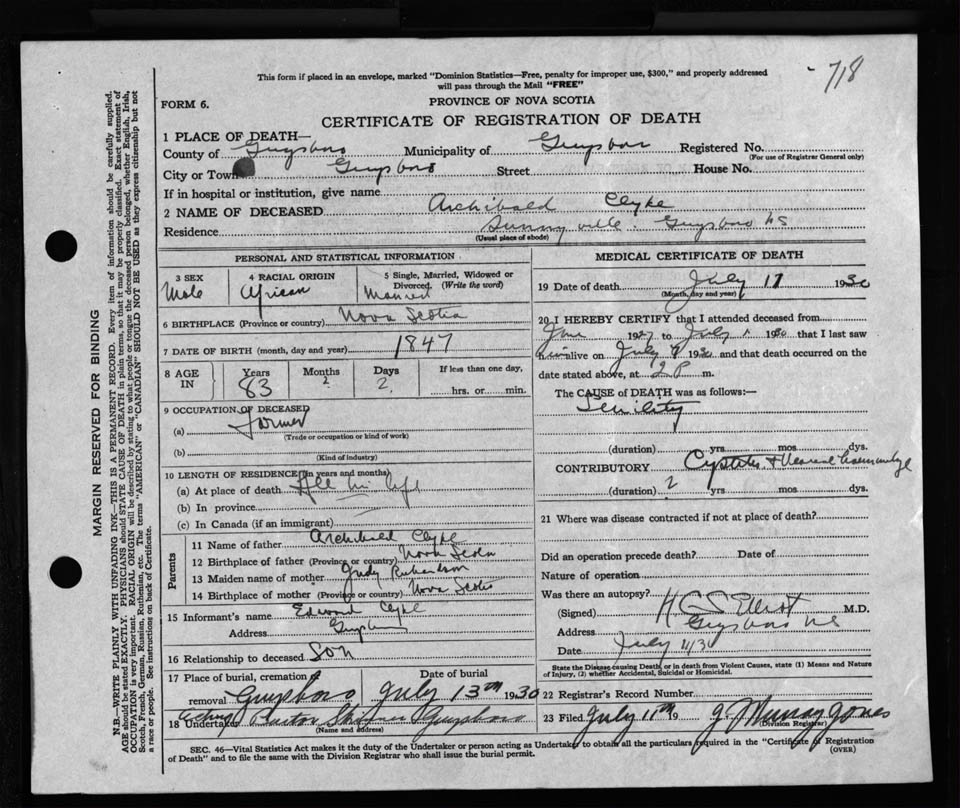 718
This form if placed in an envelope, marked "Dominion Statistics—Free, penalty for improper use, $300," and properly addressed
will pass through the Mail "FREE"
FORM 6.
PROVINCE OF NOVA SCOTIA
CERTIFICATE OF REGISTRATION OF DEATH
1 PLACE OF DEATH—
County of Guysboro Municipality of Guysboro Registered No.
(For use of Registrar General only)
City or Town Guysboro Street House No.
If in hospital or institution, give name
2 NAME OF DECEASED Archibald Clyke
Residence Sunnyville. Guysboro NS
(Usual place of abode)
PERSONAL AND STATISTICAL INFORMATION
3 SEX 4 RACIAL ORIGIN 5 Single, Married, Widowed or
Divorced. (Write the word)
Male African Married
6 BIRTHPLACE (Province or country) Nova Scotia
7 DATE OF BIRTH (month, day and year) 1847
8 AGE IN Years Months Days If less than one day,
83 2 2 hrs. or min.
9 OCCUPATION OF DECEASED
(a) Farmer
(Trade or occupation or kind of work)
(b)
(Kind of industry)
10 LENGTH OF RESIDENCE (in years and months)
(a) At place of death All his life
(b) In province
(c) In Canada (if an immigrant)
Parents
11 Name of father Archibald Clyke
12 Birthplace of father (Province or country) Nova Scotia
13 Maiden name of mother Judy Richardson
14 Birthplace of mother (Province or country) Nova Scotia
15 Informant's name Edward Clyke
Address Guysboro
16 Relationship to deceased Son
17 Place of burial, cremation or Date of burial
removal Guysboro July 13th 1930
18 Undertaker Guysboro
(Name and address)
MEDICAL CERTIFICATE OF DEATH
19 Date of death July 1930
(Month, day and year)
20 I HEREBY CERTIFY that I attended deceased from
1927 to July 1930 that I last saw
him alive on July 9 1930 and that death occurred on the
date stated above, at 2 P m.
The CAUSE of DEATH was as follows:—
Senility
(duration) yrs mos dys.
CONTRIBUTORY Cystitis &
(duration) 2 yrs mos dys.
21 Where was disease contracted if not at place of death?
Did an operation precede death? Date of
Nature of operation
Was there an autopsy?
(Signed) Elliot M.D.
Address Guysboro NS
Date July 11/30
State the Disease causing Death, or in death from Violent Causes, state (1) Means and Nature
of Injury, (2) whether Accidental, Suicidal or Homicidal.
22 Registrar's Record Number
23 Filed July 11th 19 J. Murray Jones
(Division Registrar)
SEC. 46—Vital Statistics Act makes it the duty of the Undertaker or person acting as Undertaker to obtain all the particulars required in the "Certificate of Registration
of Death" and to file the same with the Division Registrar who shall issue the burial permit.
(OVER)
MARGIN RESERVED FOR BINDING
N.B. WRITE PLAINLY WITH UNFADING INK—THIS IS A PERMANENT RECORD. Every item of information should be carefully supplied.
AGE should be stated EXACTLY. PHYSICIANS should STATE CAUSE OF DEATH in plain terms, so that it may be properly classified. Exact statement of
OCCUPATION is very important. RACIAL ORIGIN will be described by stating to what people or tongue the deceased person belonged, whether English, Irish,
Scotch, French, German, Russian, Ruthenian, etc. The terms "AMERICAN" or "CANADIAN" SHOULD NOT BE USED as they express citizenship but not
a race or people. See instructions on back of Certificate.